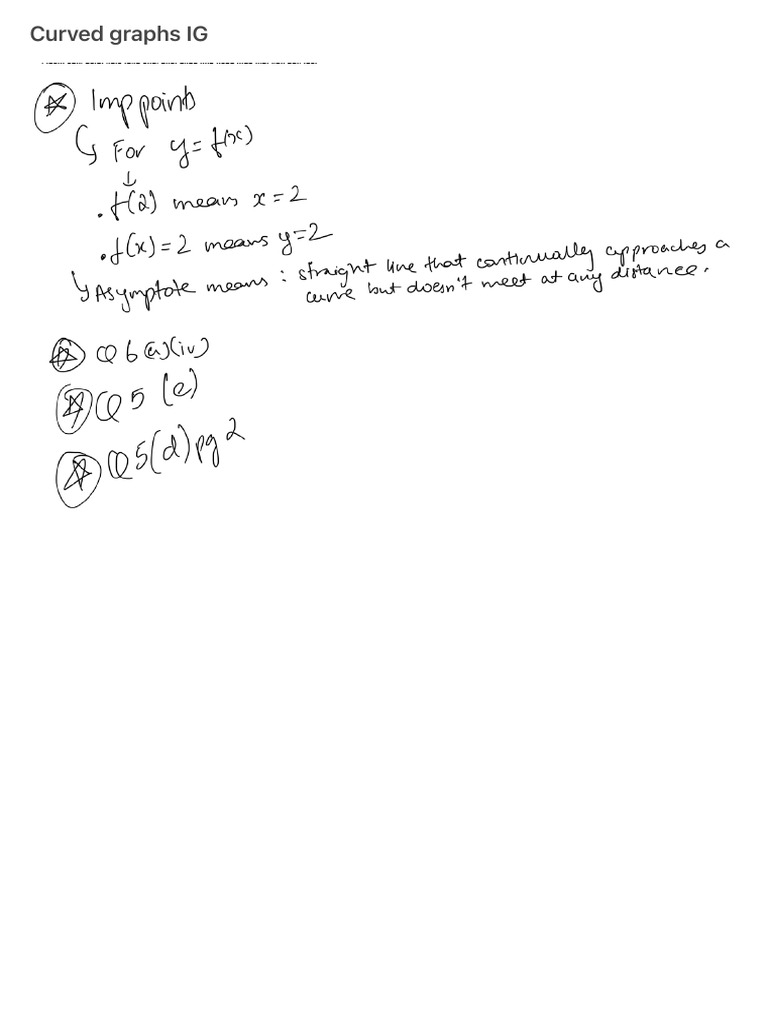 Curved graphs IG
Imp points
For y = f(x)
↓
. f(2) means x = 2
. f(x) = 2 means y = 2
Asymptote means : straight line that continually approaches a
curve but doesn't meet at any distance.
Q 6 (a)(iv)
Q 5 (e)
Q 5(d) pg 2